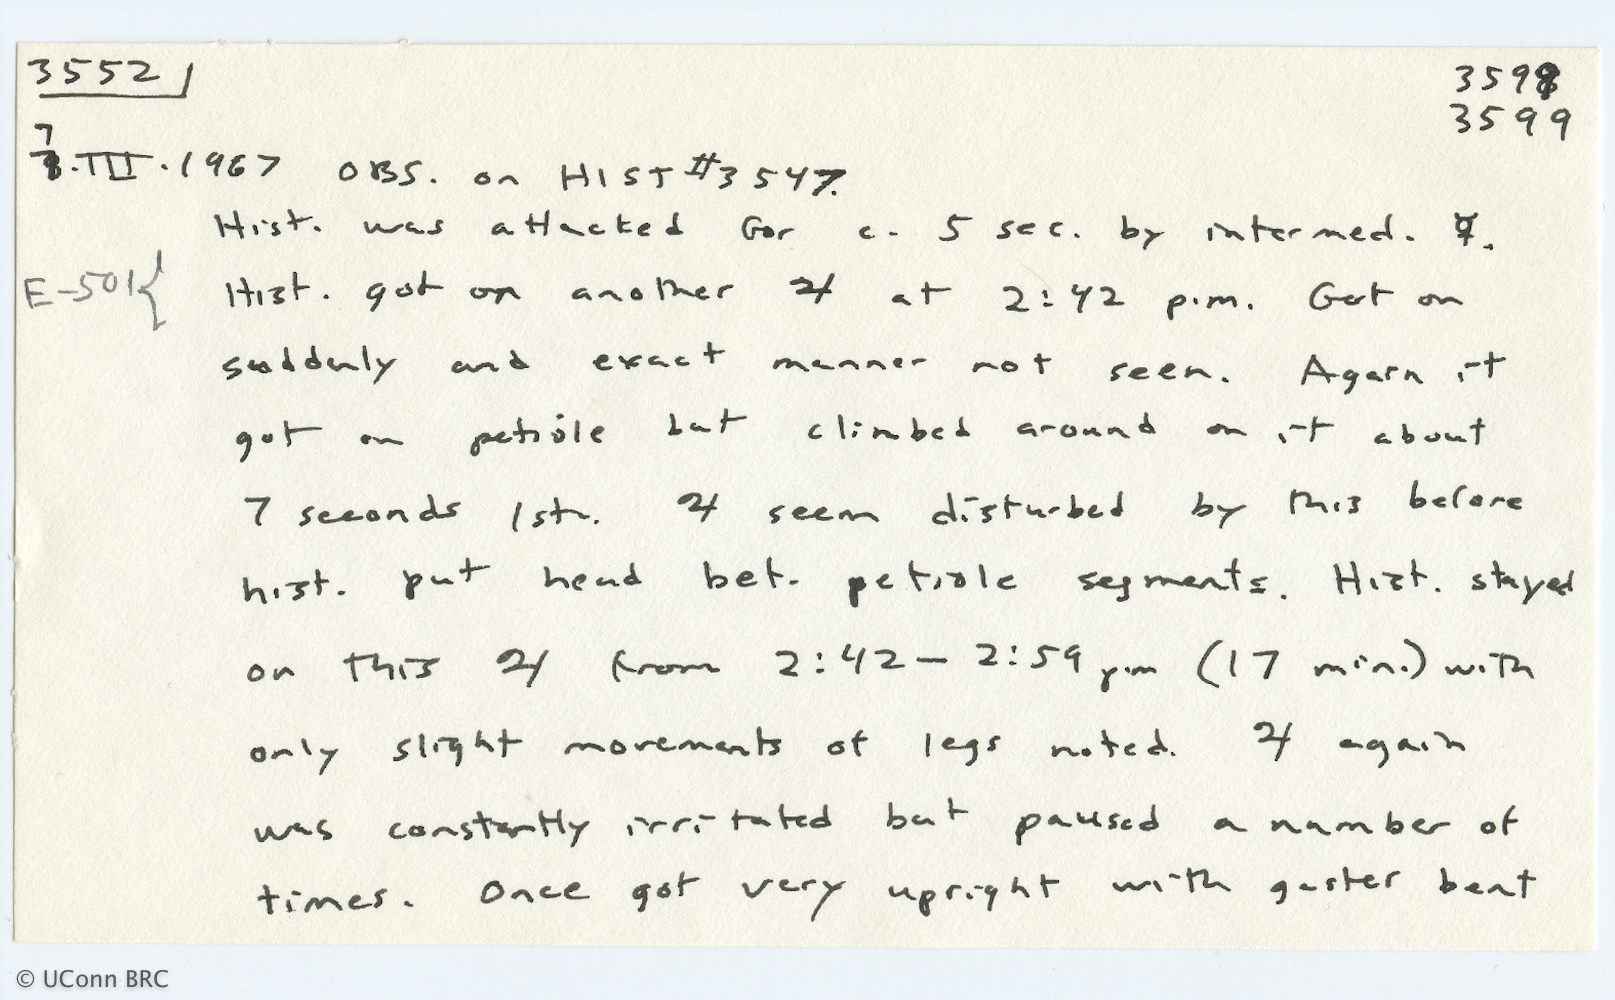 3552
3598
3599
7.III.1967 OBS. on HIST #3547.
Hist. was attacked for c. 5 sec. by intermed. ☿.
E-501{ Hist. got on another ♃ at 2:42 p.m. Got on
suddenly and exact manner not seen. Again it
got on petiole but climbed around on it about
7 seconds 1st. ♃ seem disturbed by this before
hist. put head bet. petiole segments. Hist. stayed
on this ♃ from 2:42 – 2:59 pm (17 min.) with
only slight movements of legs noted. ♃ again
was constantly irritated but paused a number of
times. Once got very upright with gaster bent
© UConn BRC